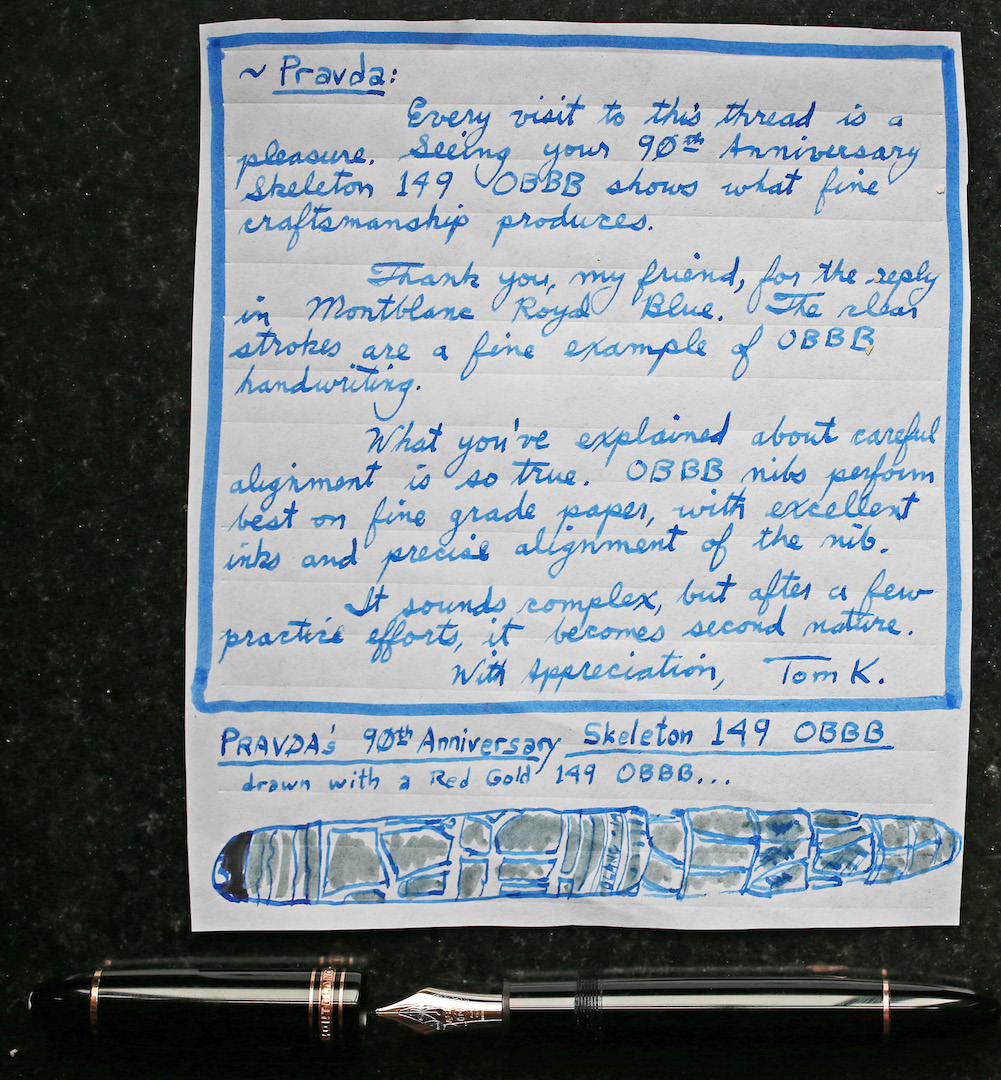 ~ Pravda:
Every visit to this thread is a
pleasure. Seeing your 90th Anniversary
Skeleton 149 OBBB shows what fine
craftsmanship produces.
Thank you, my friend, for the reply
in Montblanc Royal Blue. The clear
strokes are a fine example of OBBB
handwriting.
What you've explained about careful
alignment is so true. OBBB nibs perform
best on fine grade paper, with excellent
inks and precise alignment of the nib.
It sounds complex, but after a few
practice efforts, it becomes second nature.
With Appreciation, Tom K.
PRAVDA's 90th Anniversary Skeleton 149 OBBB
drawn with a Red Gold 149 OBBB...